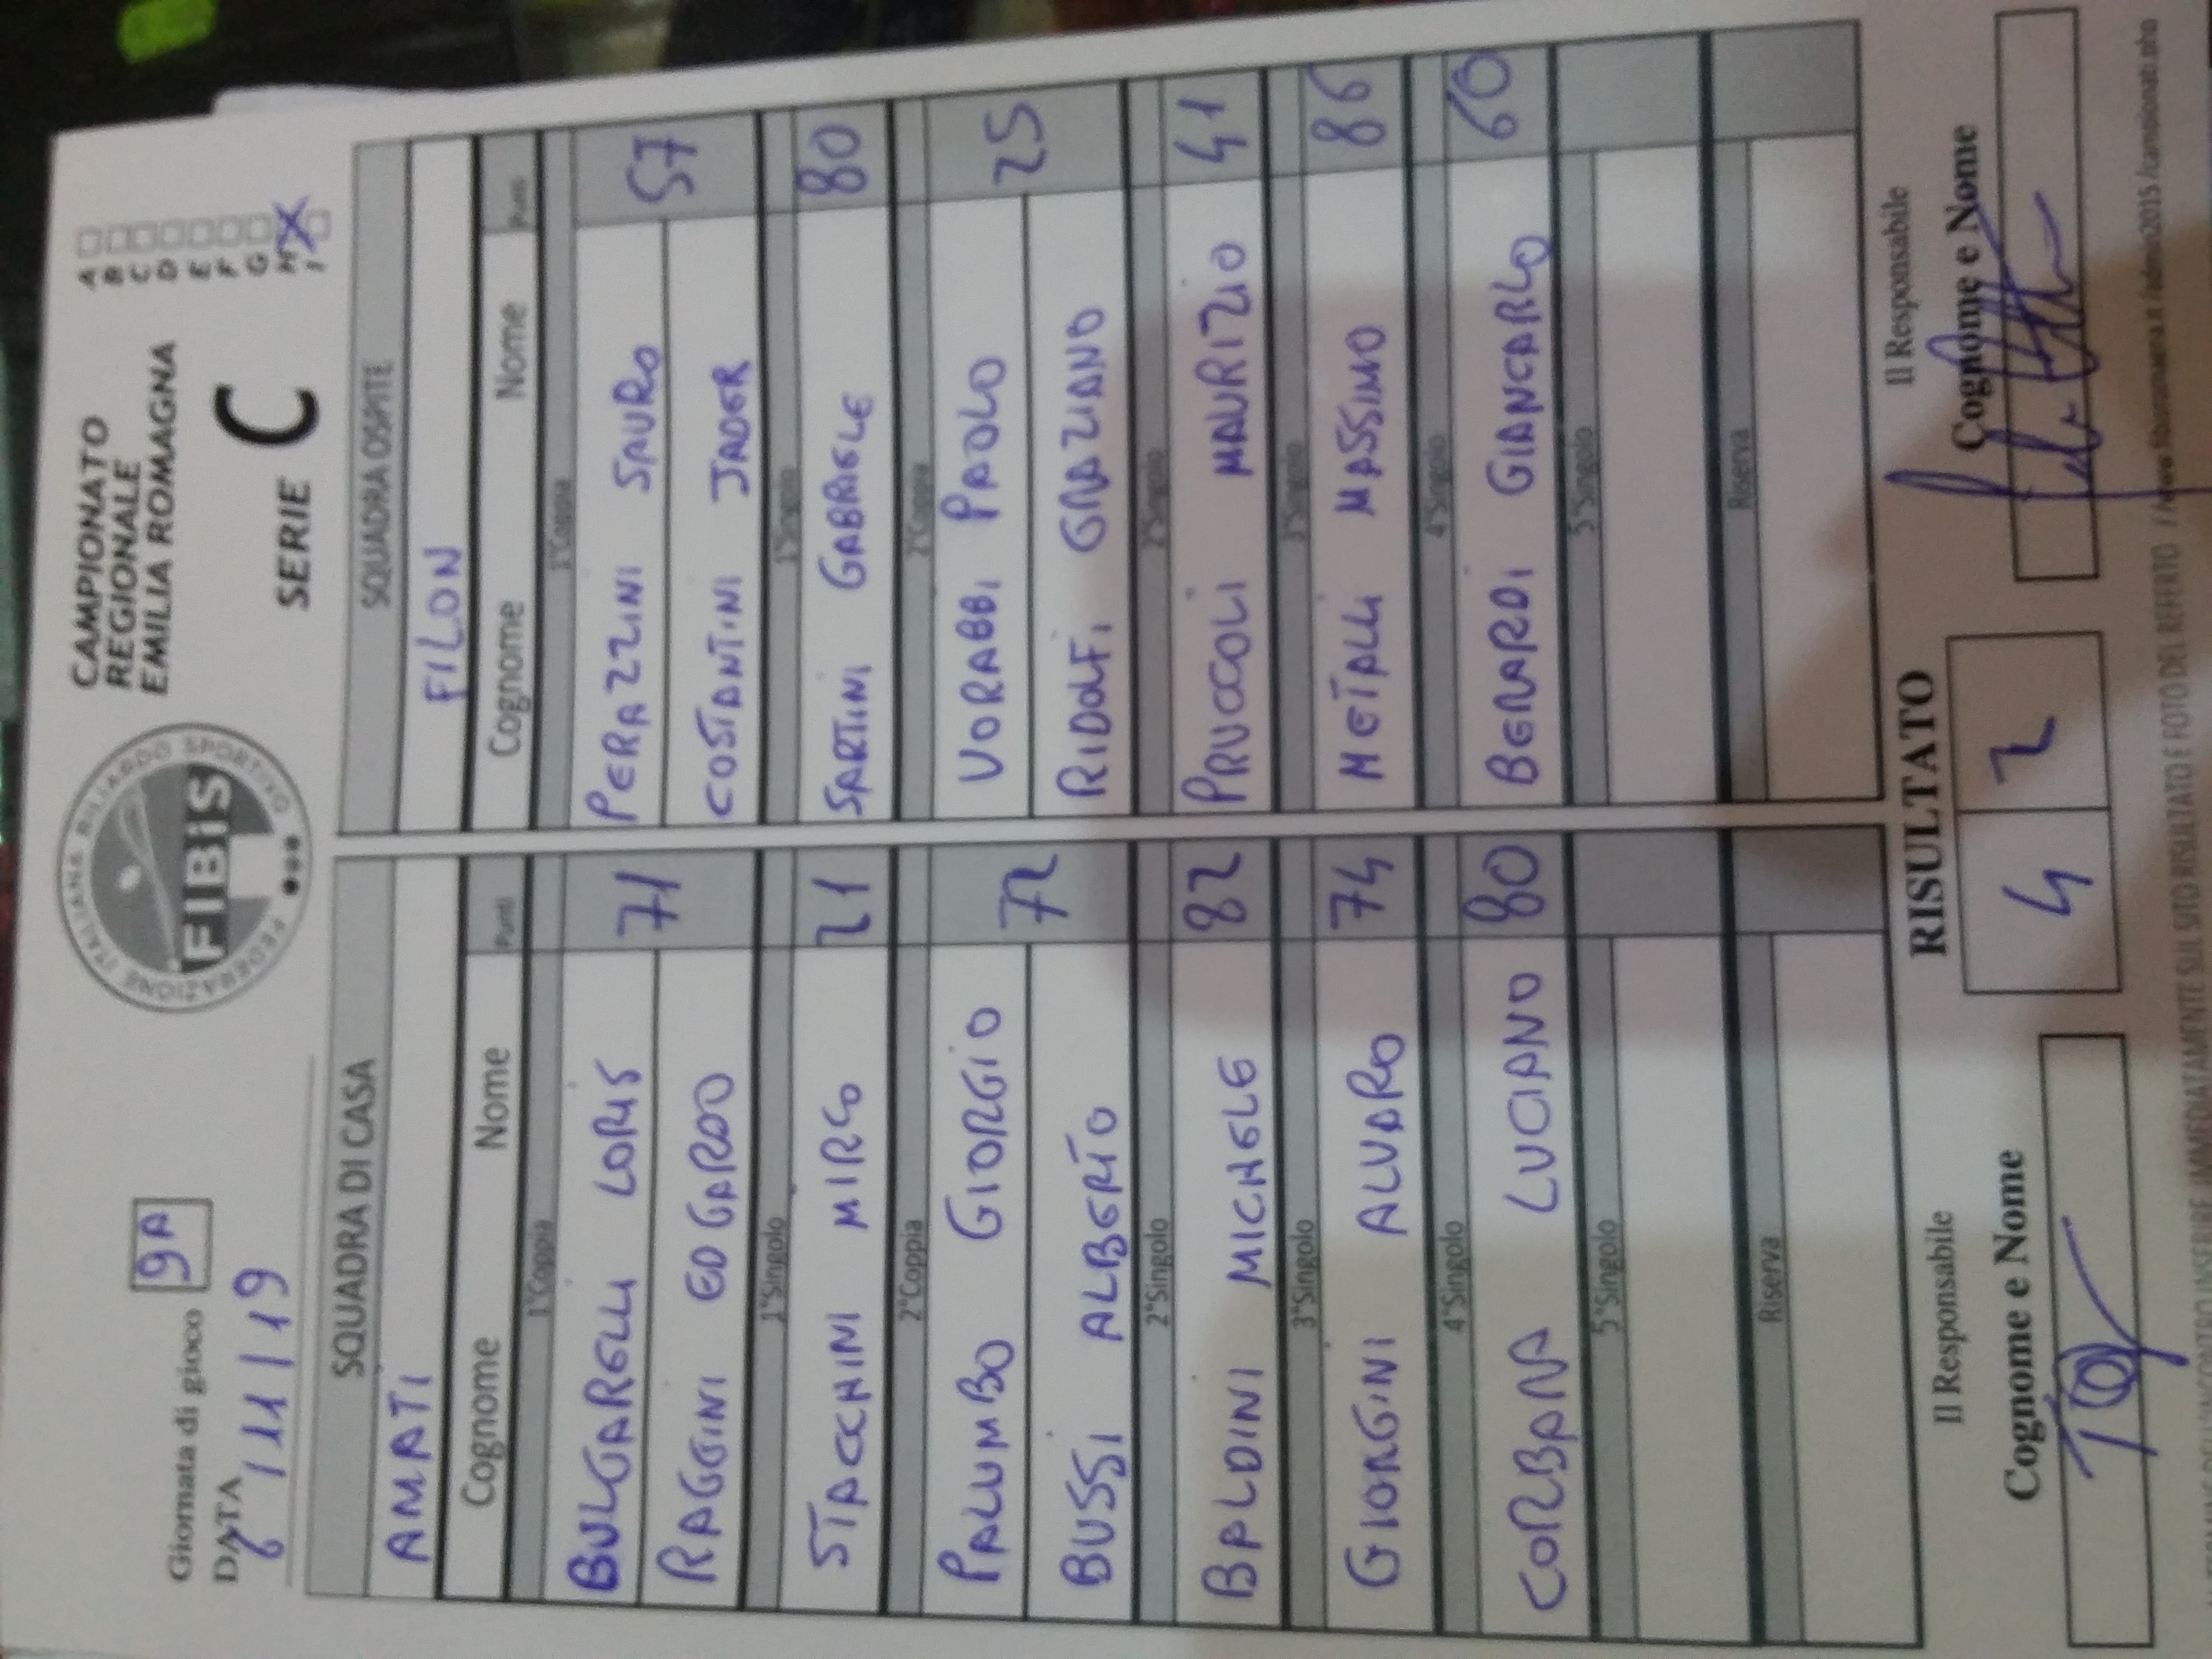 Giornata di gioco 9A
DATA 6/11/19
FEDERAZIONE ITALIANA BILIARDO SPORTIVO
FIBiS
CAMPIONATO
REGIONALE
EMILIA ROMAGNA
SERIE C
A
B
C
D
E
F
G
H X
I
SQUADRA DI CASA
AMATI
Cognome Nome Punti
1°Coppia
BULGARELLI LORIS 71
RAGGINI EDGARDO
1°Singolo
STACCHINI MIRCO 21
2°Coppia
PALUMBO GIORGIO 72
BUSSI ALBERTO
2°Singolo
BALDINI MICHELE 82
3°Singolo
GIORGINI ALVARO 74
4°Singolo
CORBANA LUCIANO 80
5°Singolo
Riserva
SQUADRA OSPITE
FILON
Cognome Nome Punti
1°Coppia
PERAZZINI SAURO 57
COSTANTINI JADER
1°Singolo
SARTINI GABRIELE 80
2°Coppia
VORABBI PAOLO 25
RIDOLFI GRAZIANO
2°Singolo
PRUCCOLI MAURIZIO 41
3°Singolo
METALLI MASSIMO 86
4°Singolo
BERARDI GIANCARLO 60
5°Singolo
Riserva
Il Responsabile
Cognome e Nome
RISULTATO
4 2
Il Responsabile
Cognome e Nome
INSERIRE IMMEDIATAMENTE SUL SITO RISULTATO E FOTO DEL REFERTO